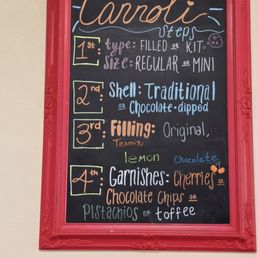 Cannoli
steps
1st: type: FILLED or KIT
size: REGULAR or MINI
2nd: Shell: Traditional
or Chocolate-dipped
3rd: Filling: Original,
Tiramisu
lemon Chocolate
4th: Garnishes: Cherries or
Chocolate Chips or
Pistachios or toffee